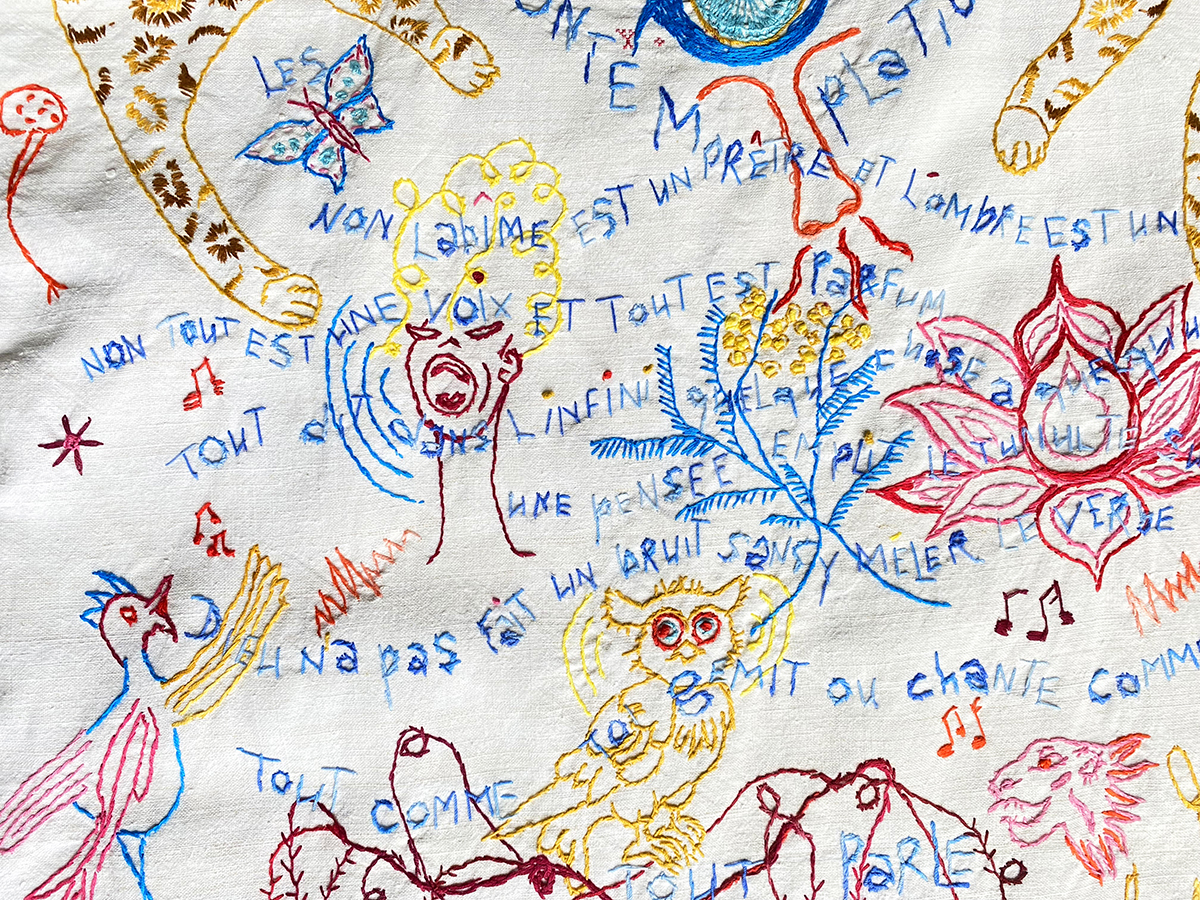 LES ONTEMPLATI
NON LabîME EST UN PRÊTRE ET LOMbRE EST UN
NON TOUT EST UNE VOIX ET TOUT EST PARFUM
TOUT dit dans LINFINI QUELQUE CHOSE a QUELQU
UNE pENSEE EMPLIT LE TUMULTE SU
DIEU Na pas Fait UN bRUIT SANS Y MÊLER LE VERbE
TOUT COMME TOI GEMIT OU chaNTE COMM
TOUT PaRLE